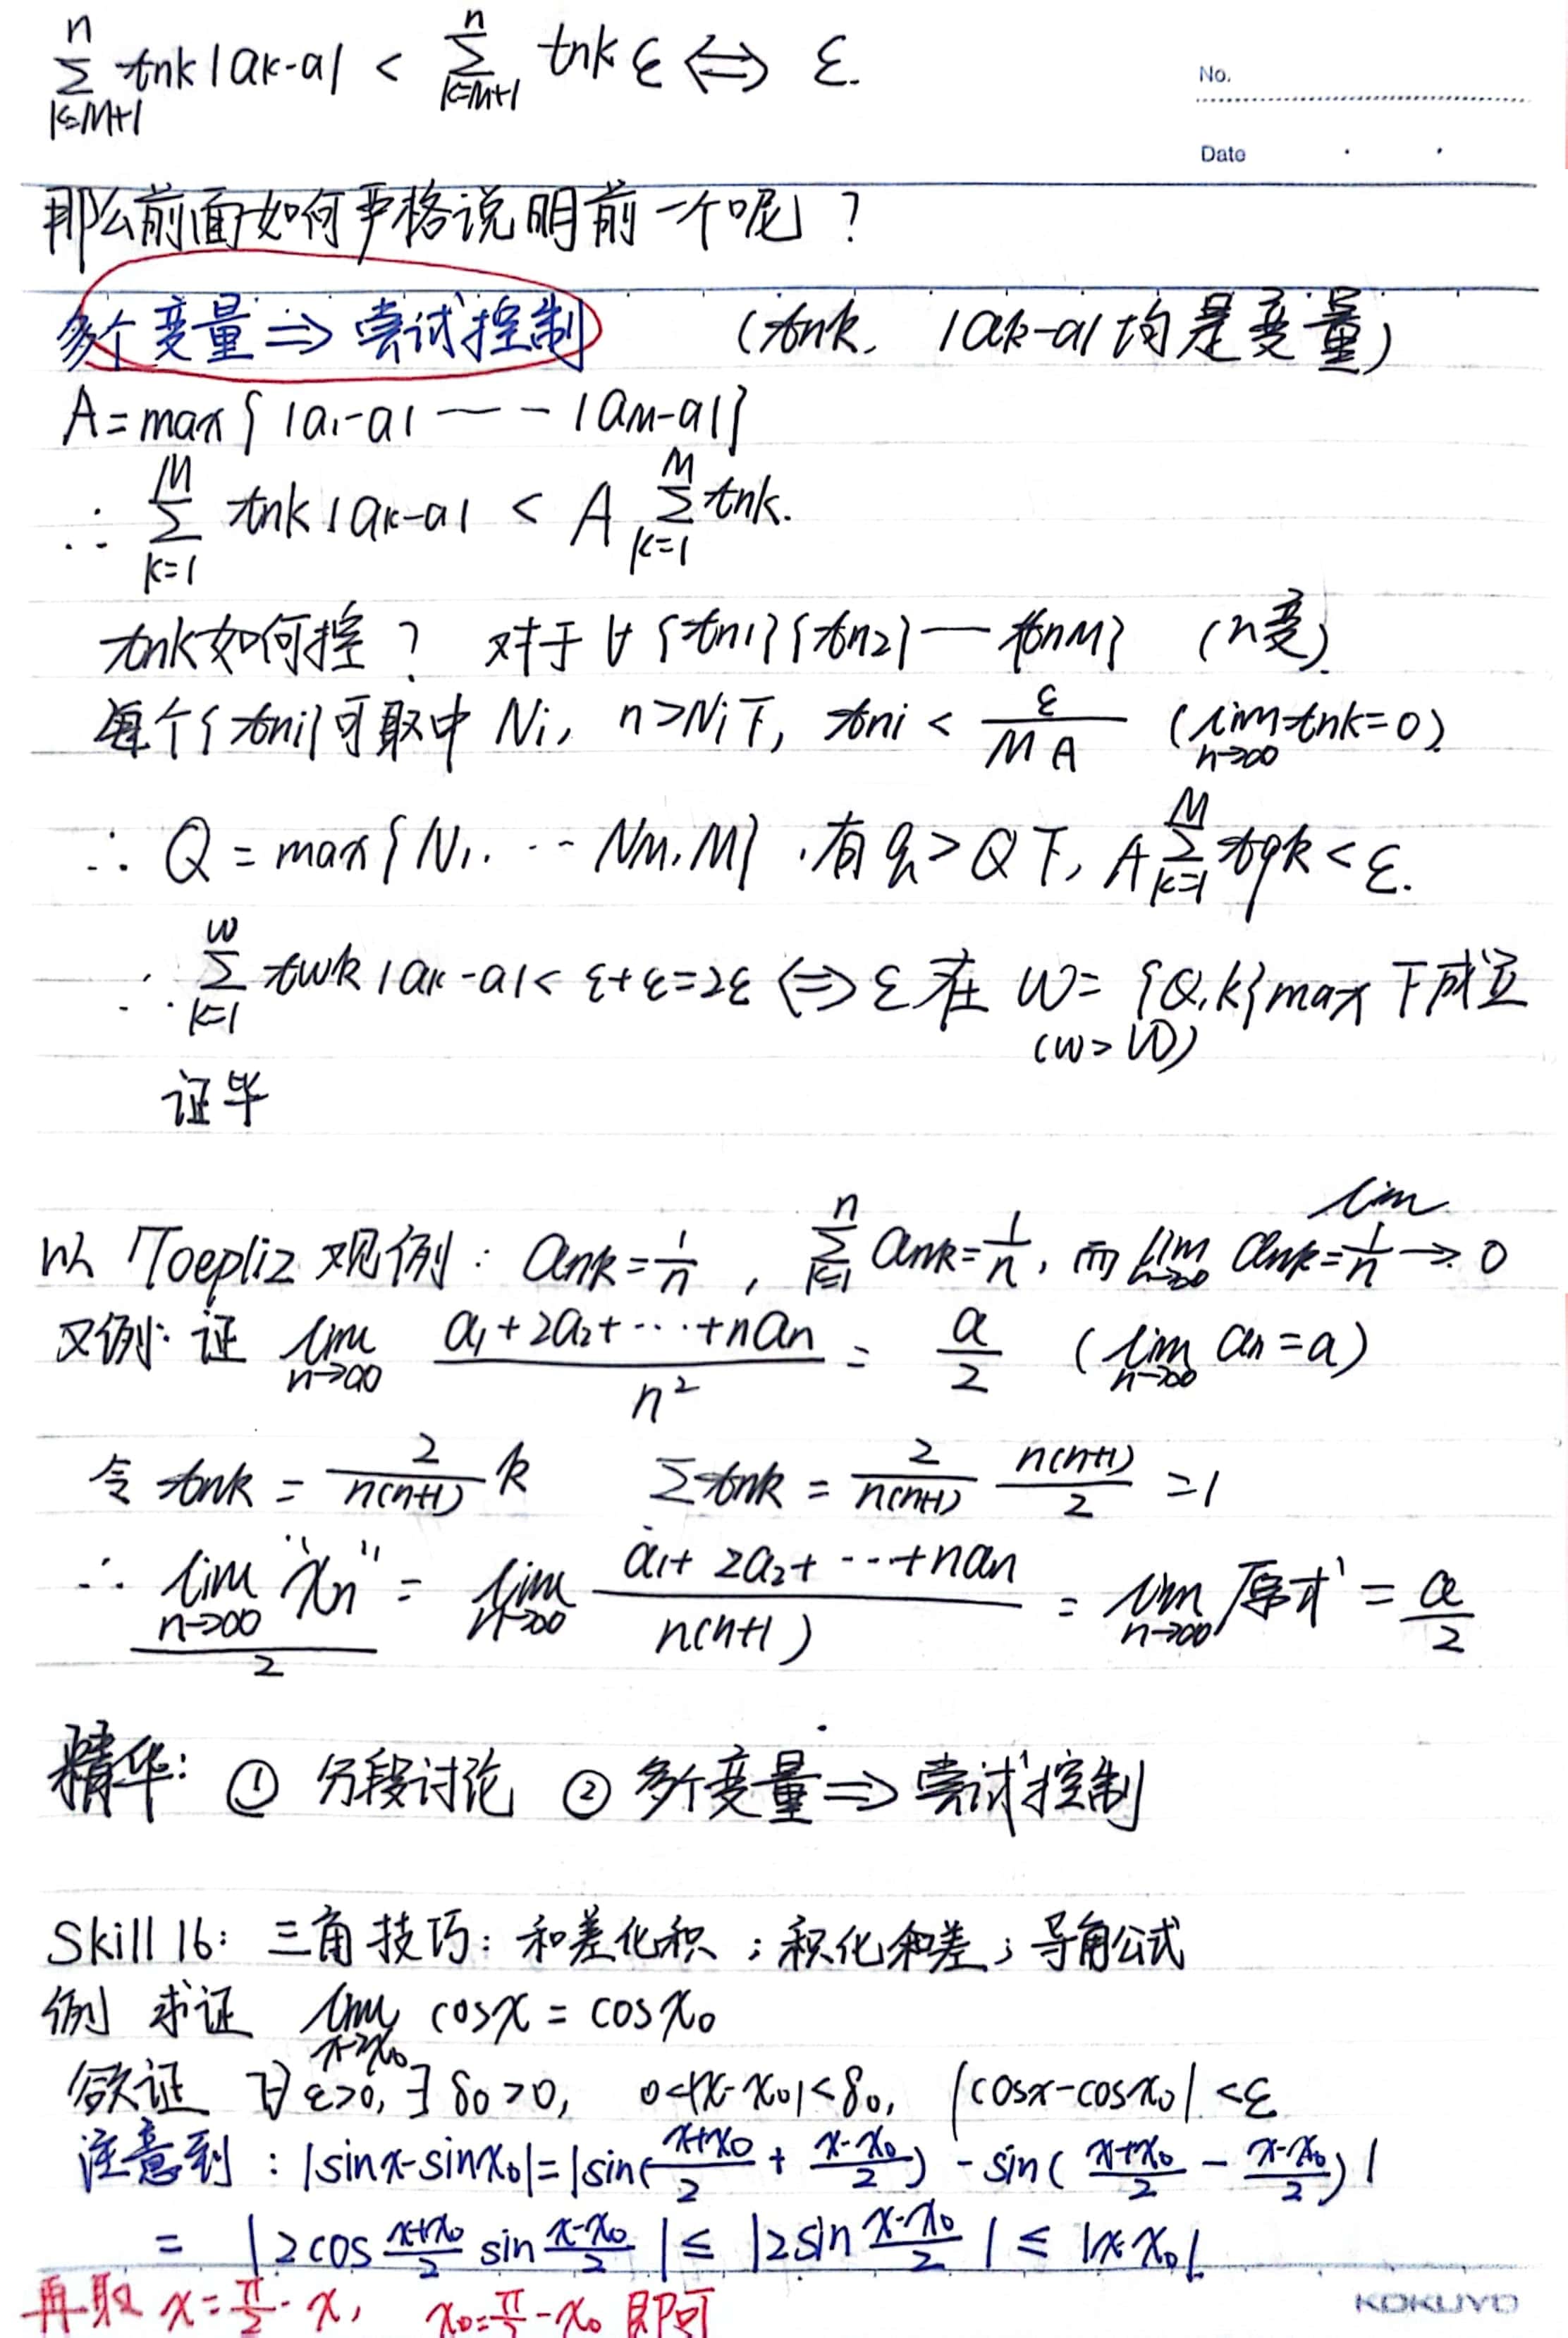 n∑k=M+1 tnk|ak-a| < n∑k=M+1 tnk ε ⟺ ε.
No.
Date
那么前面如何严格说明前一个呢?
多个变量 ⇒ 尝试控制 (tnk, |ak-a|均是变量)
A = max{ |a₁-a| —-- |aM-a| }
∴ M∑k=1 tnk|ak-a| < A M∑k=1 tnk.
tnk如何控? 对于∀{tn1}{tn2}—{tnM} (n变)
每个{tni}可取中 Ni, n>Ni下, tni < ε/MA (lim n→∞ tnk=0)
∴ Q = max{N₁. ··· NM, M}, 有q>Q下, A M∑k=1 tqk < ε.
∴ w∑k=1 twk|ak-a| < ε+ε=2ε ⟺ ε 在 W= {Q,k}max 下成立
(w>W)
证毕
以 Toepliz 观例: ank = 1/n , n∑k=1 ank = 1/n, 而 lim n→∞ ank = lim 1/n → 0
又例: 证 lim n→∞ (a₁+2a₂+···+nan)/n² = a/2 (lim n→∞ an = a)
令 tnk = 2/n(n+1) k ∑tnk = 2/n(n+1) n(n+1)/2 = 1
∴ (lim n→∞ "xn")/2 = lim n→∞ (a₁+2a₂+···+nan)/n(n+1) = lim n→∞ 原式 = a/2
精华: ① 分段讨论 ② 多个变量 ⇒ 尝试控制
Skill 16: 三角技巧: 和差化积; 积化和差; 导角公式
例 求证 lim x→x₀ cosx = cosx₀
欲证 ∀ε>0, ∃δ₀>0, 0<|x-x₀|<δ₀, |cosx-cosx₀|<ε
注意到: |sinx-sinx₀| = |sin((x+x₀)/2 + (x-x₀)/2) - sin((x+x₀)/2 - (x-x₀)/2)|
= |2cos (x+x₀)/2 sin (x-x₀)/2| ≤ |2sin (x-x₀)/2| ≤ |x-x₀|
再取 x=π/2-x, x₀=π/2-x₀ 即可
KOKUYO